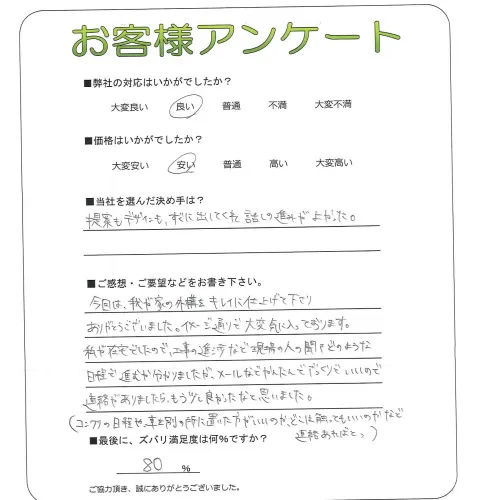 お客様アンケート
■弊社の対応はいかがでしたか？
大変良い 良い 普通 不満 大変不満
■価格はいかがでしたか？
大変安い 安い 普通 高い 大変高い
■当社を選んだ決め手は？
提案もデザインも、すぐに出してくれて話しの進みがよかった。
■ご感想・ご要望などをお書き下さい。
今回は、我が家の外構をキレイに仕上げて下さり
ありがとうございました。イメージ通りで大変気に入っております。
私が在宅でしたので、工事の進渉など現場の人の聞けどのような
日程で進むか分かりましたが、メールなどかんたんでざっくりでいいので
連絡がありましたら、もう少し良かったなと思いました。
(コンクリの日程や、車を別の所に置いた方がいいのか、どこは触ってもいいのかなど
連絡あればと。)
■最後に、ズバリ満足度は何％ですか？
80 %
ご協力頂き、誠にありがとうございました。